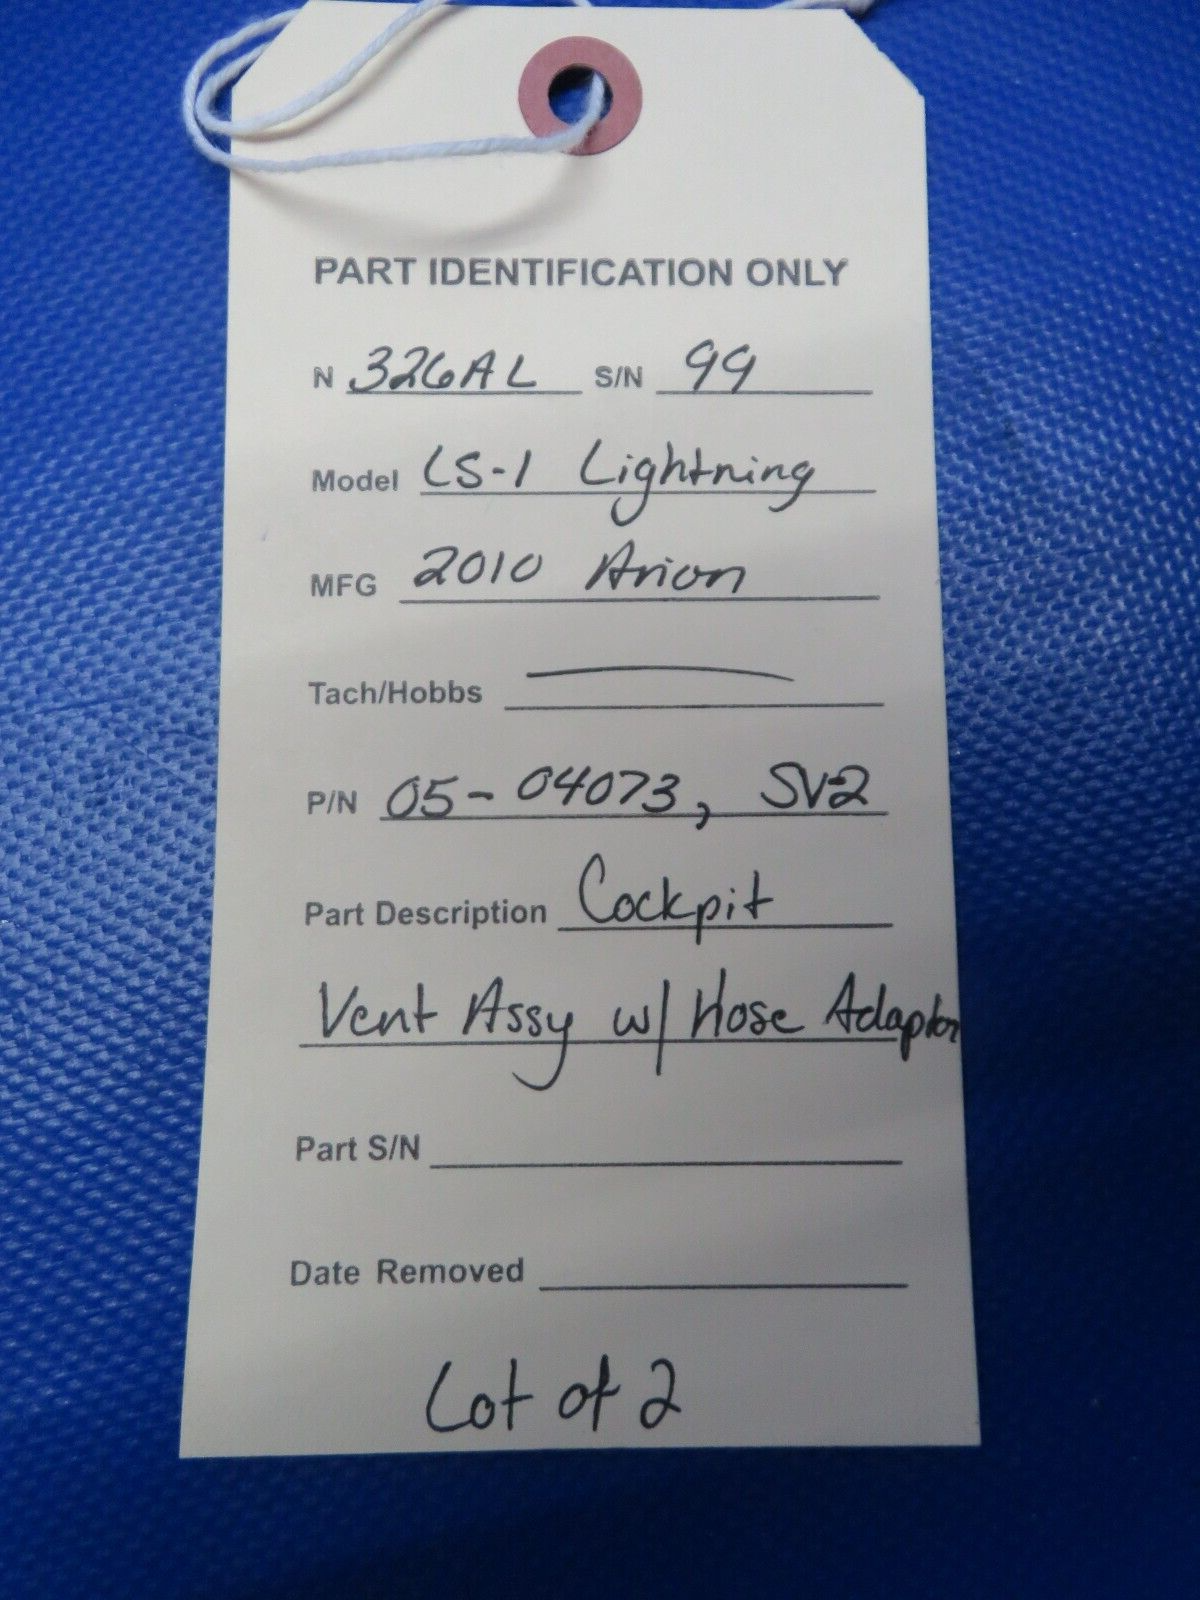 PART IDENTIFICATION ONLY
N 326AL S/N 99
Model LS-1 Lightning
MFG 2010 Arion
Tach/Hobbs
P/N 05-04073, SV-2
Part Description Cockpit
Vent Assy w/ Hose Adaptor
Part S/N
Date Removed
Lot of 2